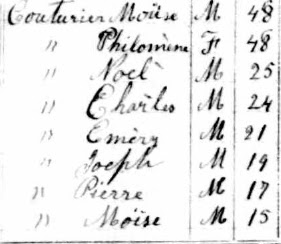 Couturier Moïse M 48
" Philomène F 48
" Noël M 25
" Charles M 24
" Eméry M 21
" Joseph M 19
" Pierre M 17
" Moïse M 15